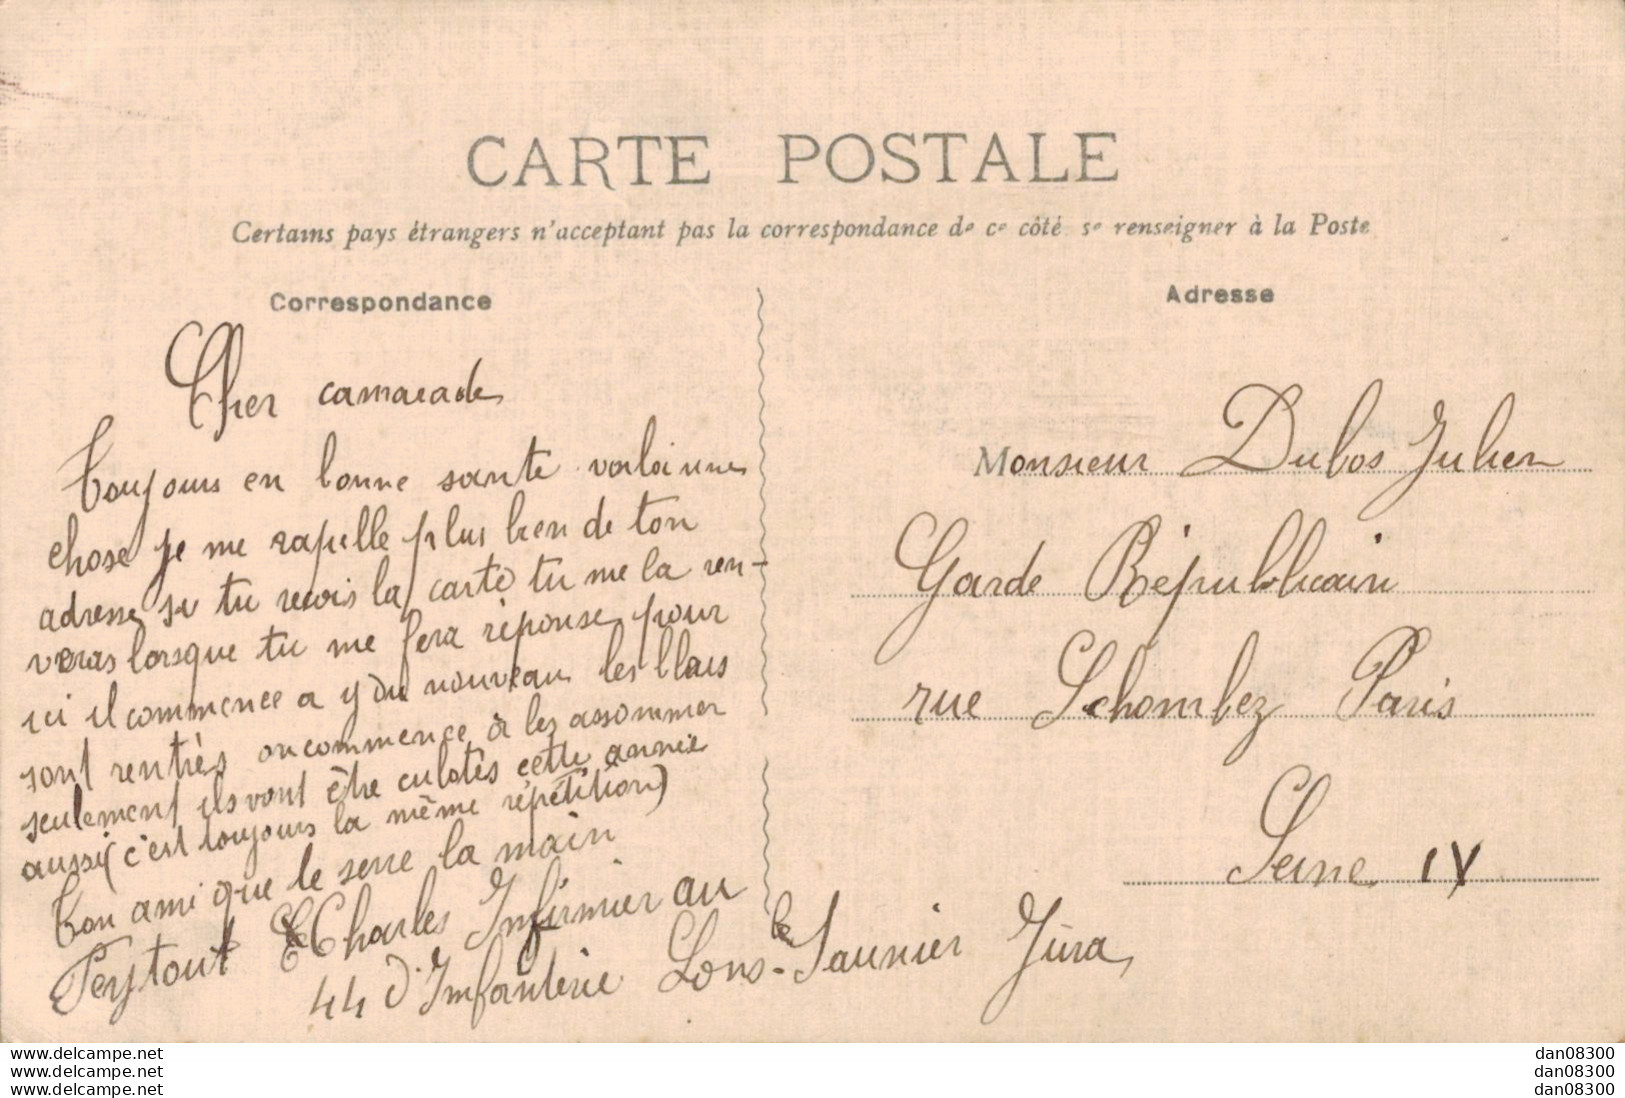 CARTE POSTALE
Certains pays étrangers n'acceptant pas la correspondance de ce côté se renseigner à la Poste
Correspondance
Cher camarade
Toujours en bonne sante voila une
chose je me rapelle plus bien de ton
adresse si tu recois la carte tu me la ren-
veras lorsque tu me fera réponse pour
ici il commence a y du nouveau les blaus
sont rentrès on commence à les assommer
seulement ils vont être culotés cette année
aussi (c'est toujours la même répétition)
Ton ami que te serre la main
Peytout Charles Infirmier au
44 d'Infanterie Lons-le Saunier Jura
Adresse
Monsieur Dubos Julien
Garde Républicain
rue Schombez Paris
Seine IV
www.delcampe.net
www.delcampe.net
www.delcampe.net
dan08300
dan08300
dan08300